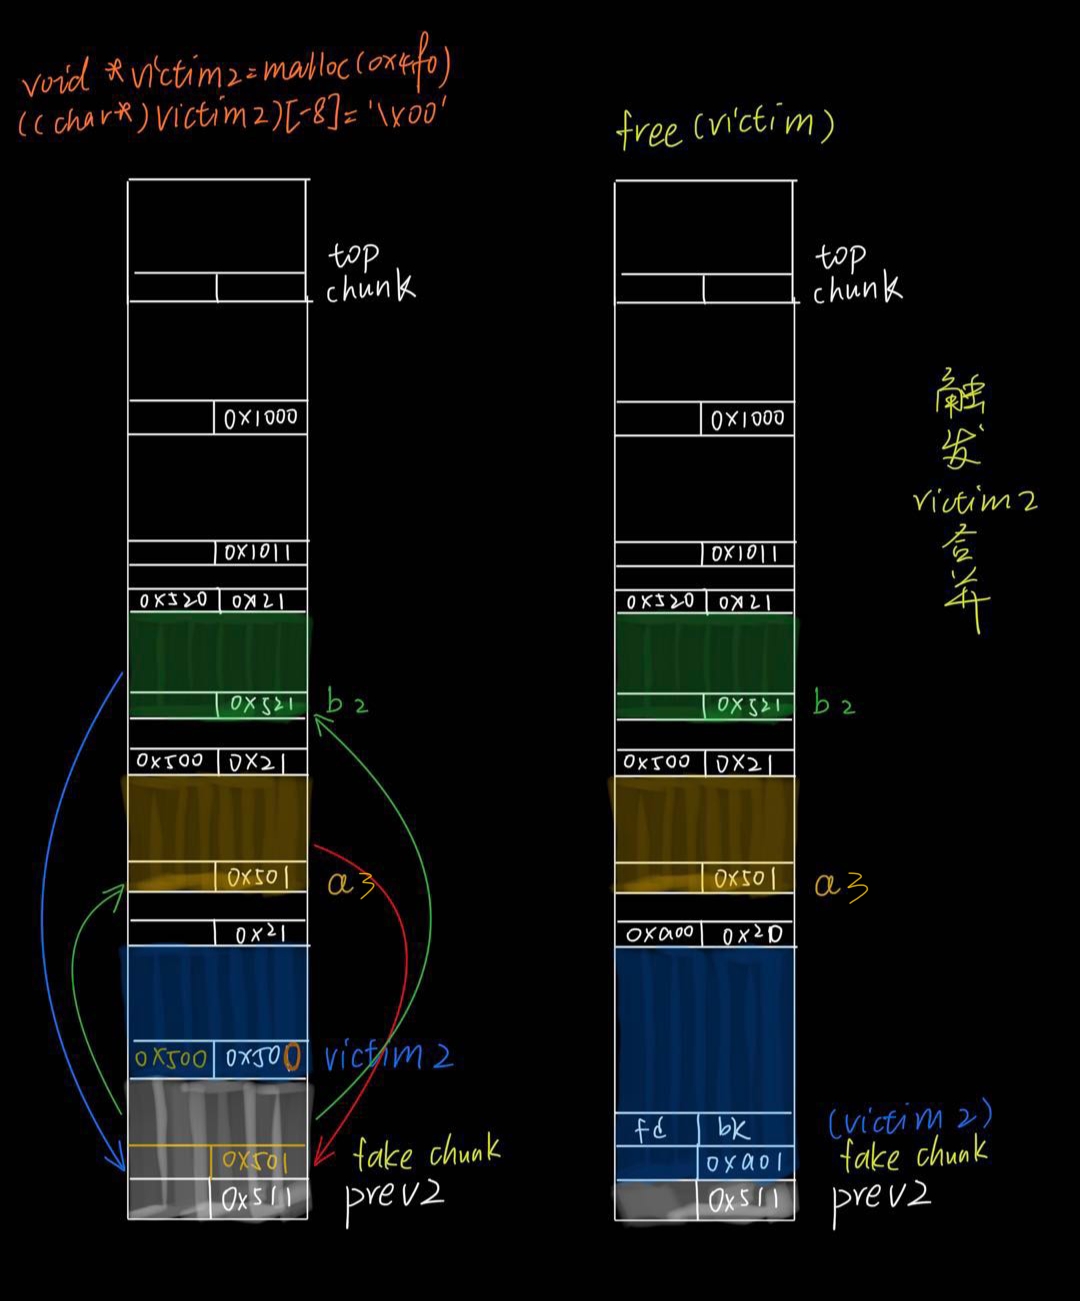 void *victim2=malloc(0x4f0)
((char*)victim2)[-8]='\x00'
top
chunk
0x1000
0x1011
0x520 0x21
0x521 b2
0x500 0x21
0x501 a3
0x21
0x500 0x500 victim2
0x501 fake chunk
0x511 prev2
free(victim)
top
chunk
0x1000
0x1011
0x520 0x21
0x521 b2
0x500 0x21
0x501 a3
0xa00 0x20
fd bk (victim2)
0xa01 fake chunk
0x511 prev2
触
发
victim2
合
并